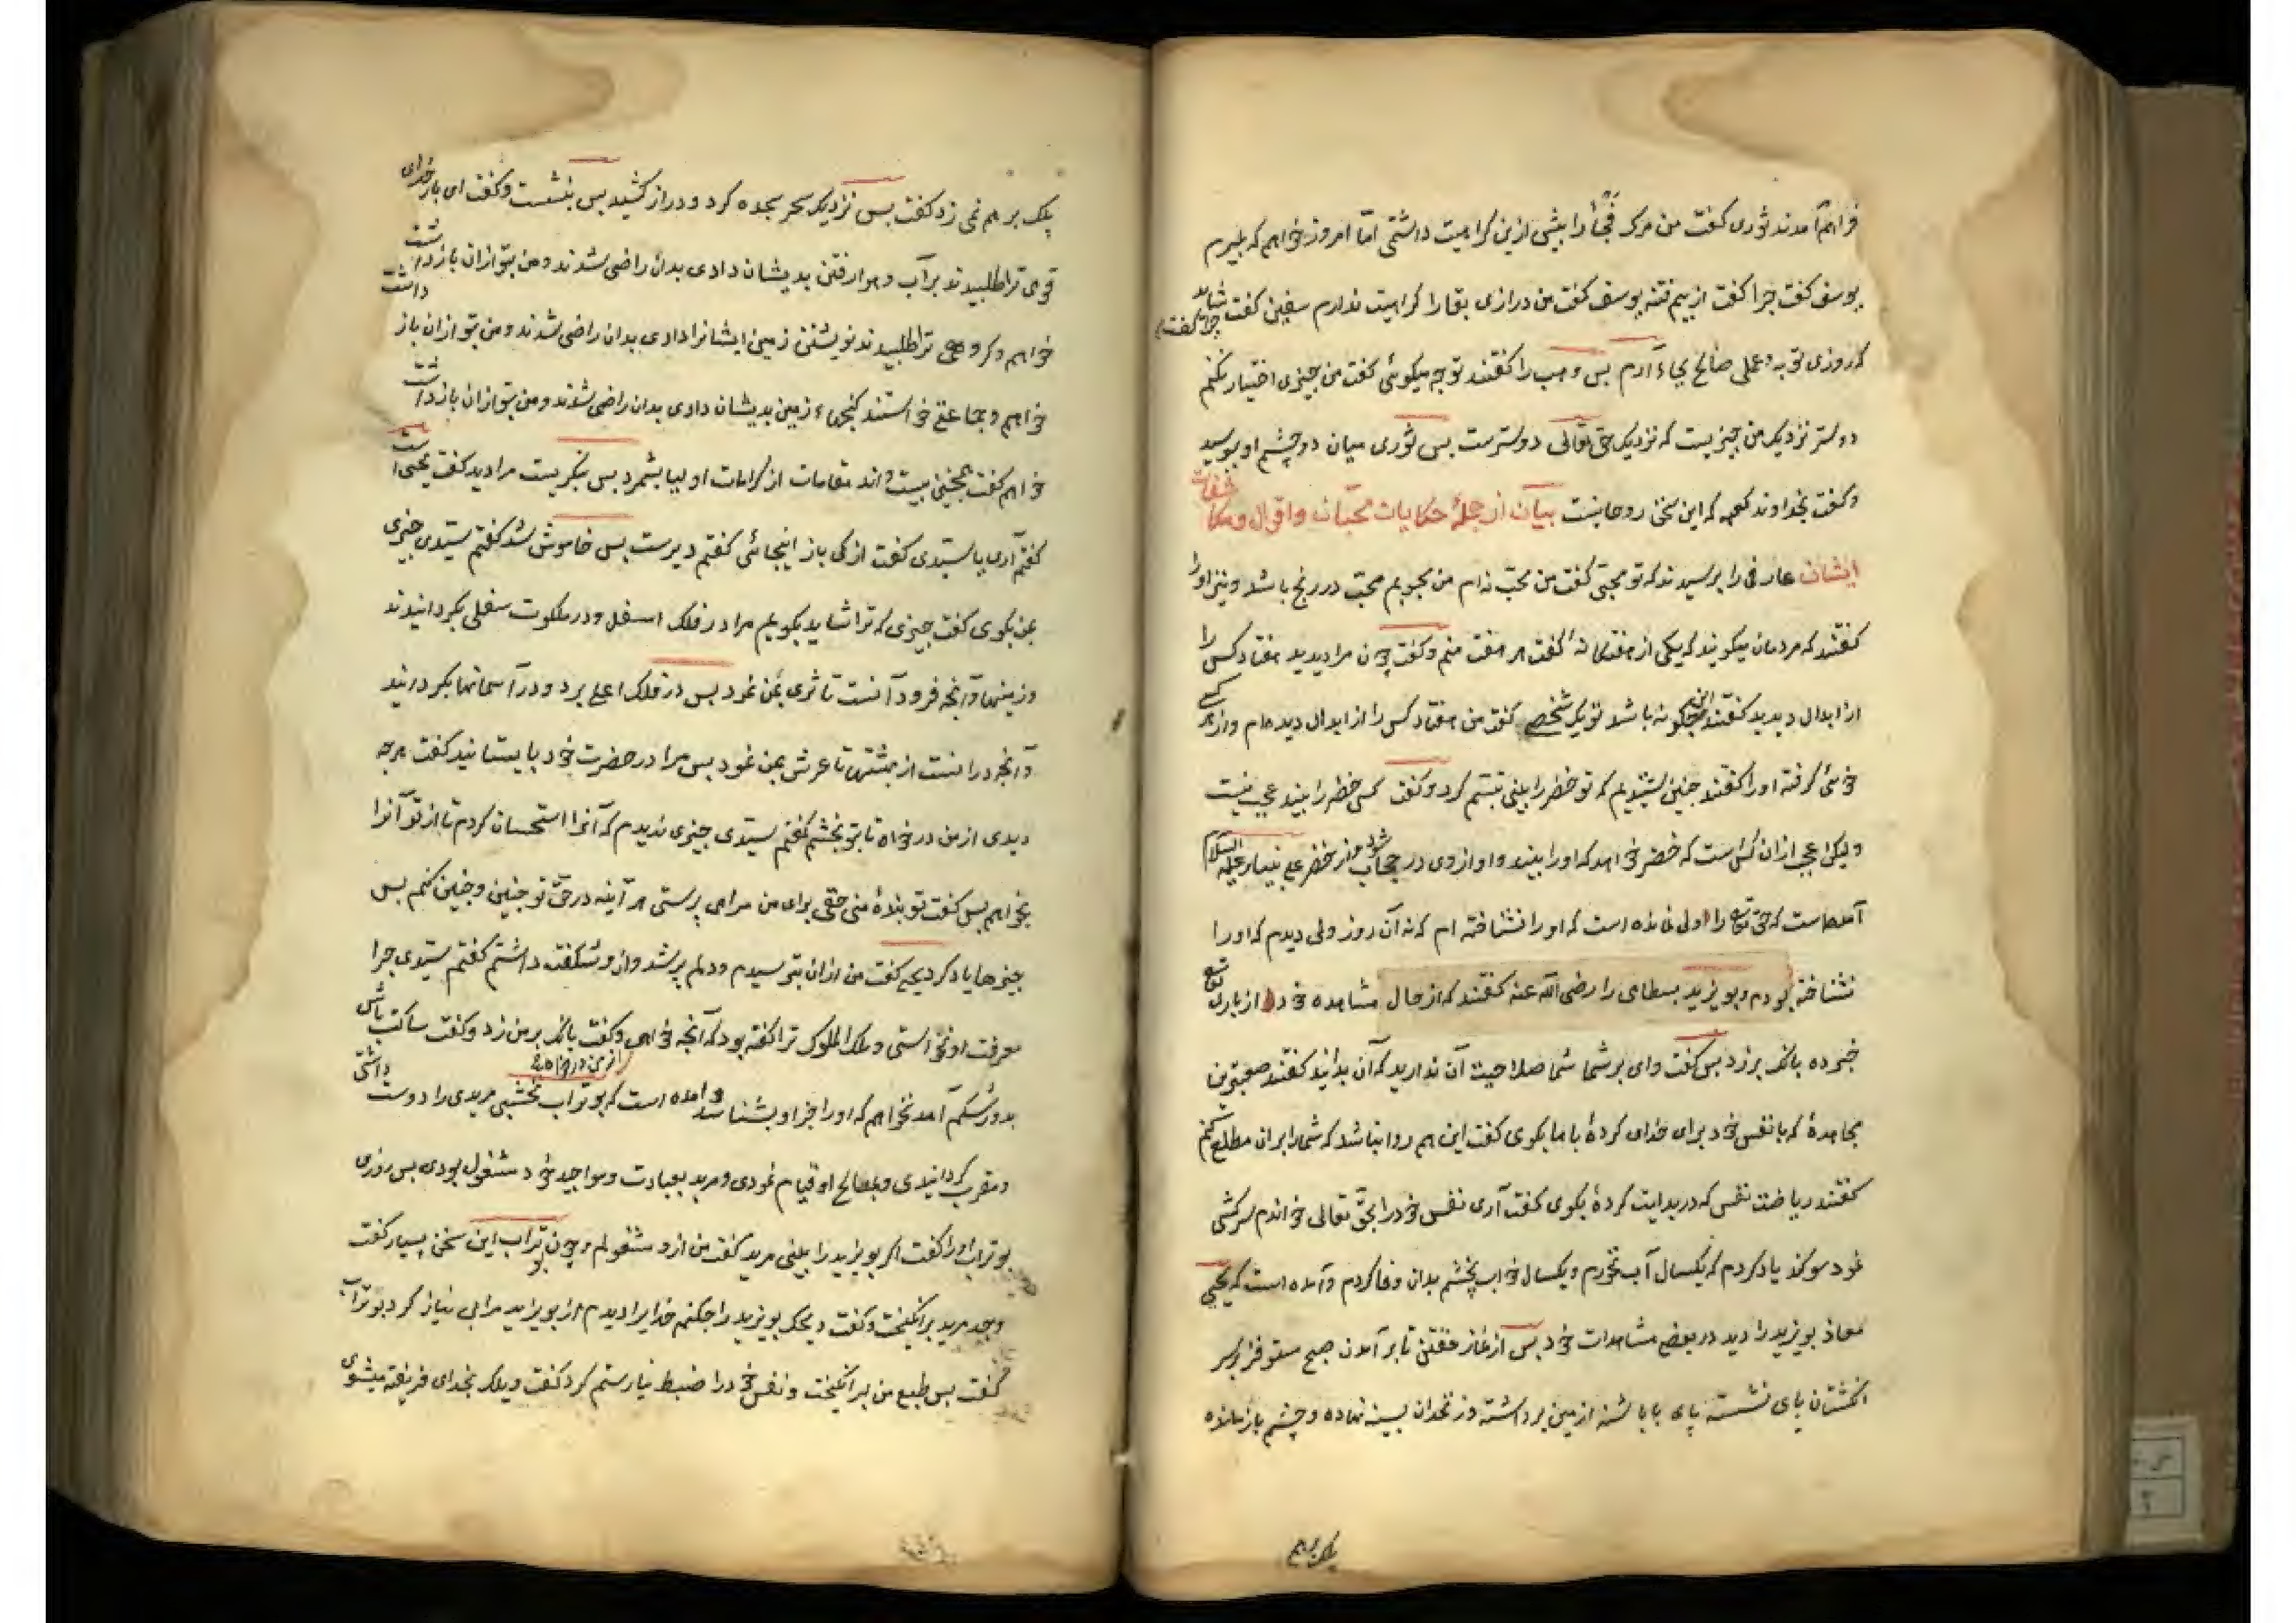 فراهم آمدند ثوری کفت من مرک فجأ را بیشی ازین کراهیت داشتمی امّا امروز خواهم که بمیرم
یوسف کفت جرا کفت از بیم فتنه یوسف کفت من درازی بقا را کراهیت ندارم سفین کفت جرا کفت شاید
که روزی توبه و عملی صالح بجاء آرم بس وهیب را کفتند تو جه میکوئی کفت من جیزی اختیار نکنم
دوستر نزدیک من جیزیست که نزدیک حق تعالی دوسترست بس ثوری میان دو چشم او ببوسید
و کفت بخداوند کعبه که این سخن روحانیست بیان از جملهٔ حکایات محبّان و اقوال و مکاشفات
ایشان عارفی را برسیدند که تو محبّی کفت من محبّ نه ام من محبوبم محبّ در رنج باشد و نیز او را
کفتند که مردمان میکویند که یکی از هفتکانهٔ کفت هر هفت منم و کفت چون مرا دیدید هفتاد کس را
از ابدال دیدید کفتند این جکونه باشد تو یک شخصی کفت من هفتاد کس را از ابدال دیده ام و از هر کسی
خوئی کرفته او را کفتند جنین شنیدیم که تو خضر را بینی تبسّم کرد و کفت کسی خضر را بیند عجب نیست
ولیکن عجب از آن کس است که خضر خواهد که او را بیند و او از وی در حجاب شود و از خضر علی نبینا و علیه السلام
آمده است که حق تعالی را ولی نمانده است که او را نشناخته ام که نه آن روز ولی دیدم که او را
نشناخته بودم و بویزید بسطامی را رضی الله عنه کفتند که از حال مشاهده خود از باری تعالی
خبر ده بانک برزد بس کفت وای بر شما شما صلاحیت آن ندارید که آن بدانید کفتند صعبترین
مجاهدهٔ که با نفس خود برای خدای کردهٔ با ما بکوی کفت این هم روا نباشد که شما را بران مطلع کنم
کفتند ریاضت نفس که در بدایت کردهٔ بکوی کفت آری نفس خود را بحق تعالی خواندم سرکشی
نمود سوکند یاد کردم که یکسال آب نخورم و یکسال خواب نچشم بدان وفا کردم و آمده است که یحیی
معاذ بویزید را دید در بعضی مشاهدات خود بس از نماز خفتن تا بر آمدن صبح مستوفز بر سر
انکشتان بای نشسته پای با باشنه از زمین برداشته و زنخدان بسینه نهاده و چشم باز مانده
پلک برهم
پلک برهم نمی زد کفت بس نزدیک سحر سجده کرد و دراز کشید بس بنشست و کفت ای بار خدای
قومی ترا طلبیدند بر آب و هوا رفتن بدیشان دادی بدان راضی شدند و من بتو از آن باز داشت
خواهم و کروهی ترا طلبیدند نوشتن زمین ایشانرا دادی بدان راضی شدند و من بتو از آن باز داشت
خواهم و جماعتی خواستند کنجهاء زمین بدیشان دادی بدان راضی شدند و من بتو از آن باز داشت
خواهم کفت همچنین بیست و اند مقامات از کرامات اولیا بشمرد بس بنکریست مرا دید کفت یحیی است
کفتم آری یا سیّدی کفت از کی باز اینجائی کفتم دیرست بس خاموش شد کفتم سیّدی جیزی
بمن بکوی کفت جیزی که ترا شاید بکویم مرا در فلک اسفل و در ملکوت سفلی بکردانیدند
و زمینها و آنجه فرود آنست تا ثری بمن نمود بس در فلک اعلی برد و در آسمانها بکردانید
و آنجه در انست از بهشتها تا عرش بمن نمود بس مرا در حضرت خود بایستانید کفت هر جه
دیدی از من درخواه تا بتو بخشم کفتم سیّدی جیزی ندیدم که آنرا استحسان کردم تا از تو آنرا
بخواهم بس کفت تو بندهٔ منی حقی برای من مرا می پرستی هر آینه در حق تو جنین و جنین کنم بس
جیزها یاد کرد یحیی کفت من از آن بترسیدم و دلم پر شد و از و شکفت داشتم کفتم سیّدی جرا
معرفت او نخواستی و ملک الملوک ترا کفته بود که آنجه خواهی از من درخواه و کفت بانک بر من زد و کفت ساکت باش
بدو رشکم آمد نخواهم که او را جز او بشناسد و آمده است که بوتراب نخشبی مریدی را دوست داشتی
و مقرب کردانیدی و بمصالح او قیام نمودی و مرید بعبادت و مواجید خود مشغول بودی بس روزی
بوتراب او را کفت اکر بویزید را بینی مرید کفت من ازو مشغولم و چون بوتراب این سخن بسیار کفت
وجد مرید برانکیخت و کفت ویحک بویزید را جکنم خدایرا دیدم از بویزید مرا بی نیاز کرد بوتراب
کفت بس طبع من برانکیخت و نفس خود را ضبط نیارستم کرد کفت ویلک بخدای فریفته میشوی